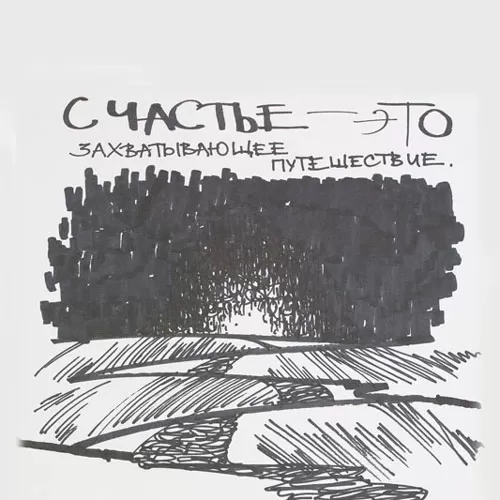 СЧАСТЬЕ — ЭТО
ЗАХВАТЫВАЮЩЕЕ
ПУТЕШЕСТВИЕ.